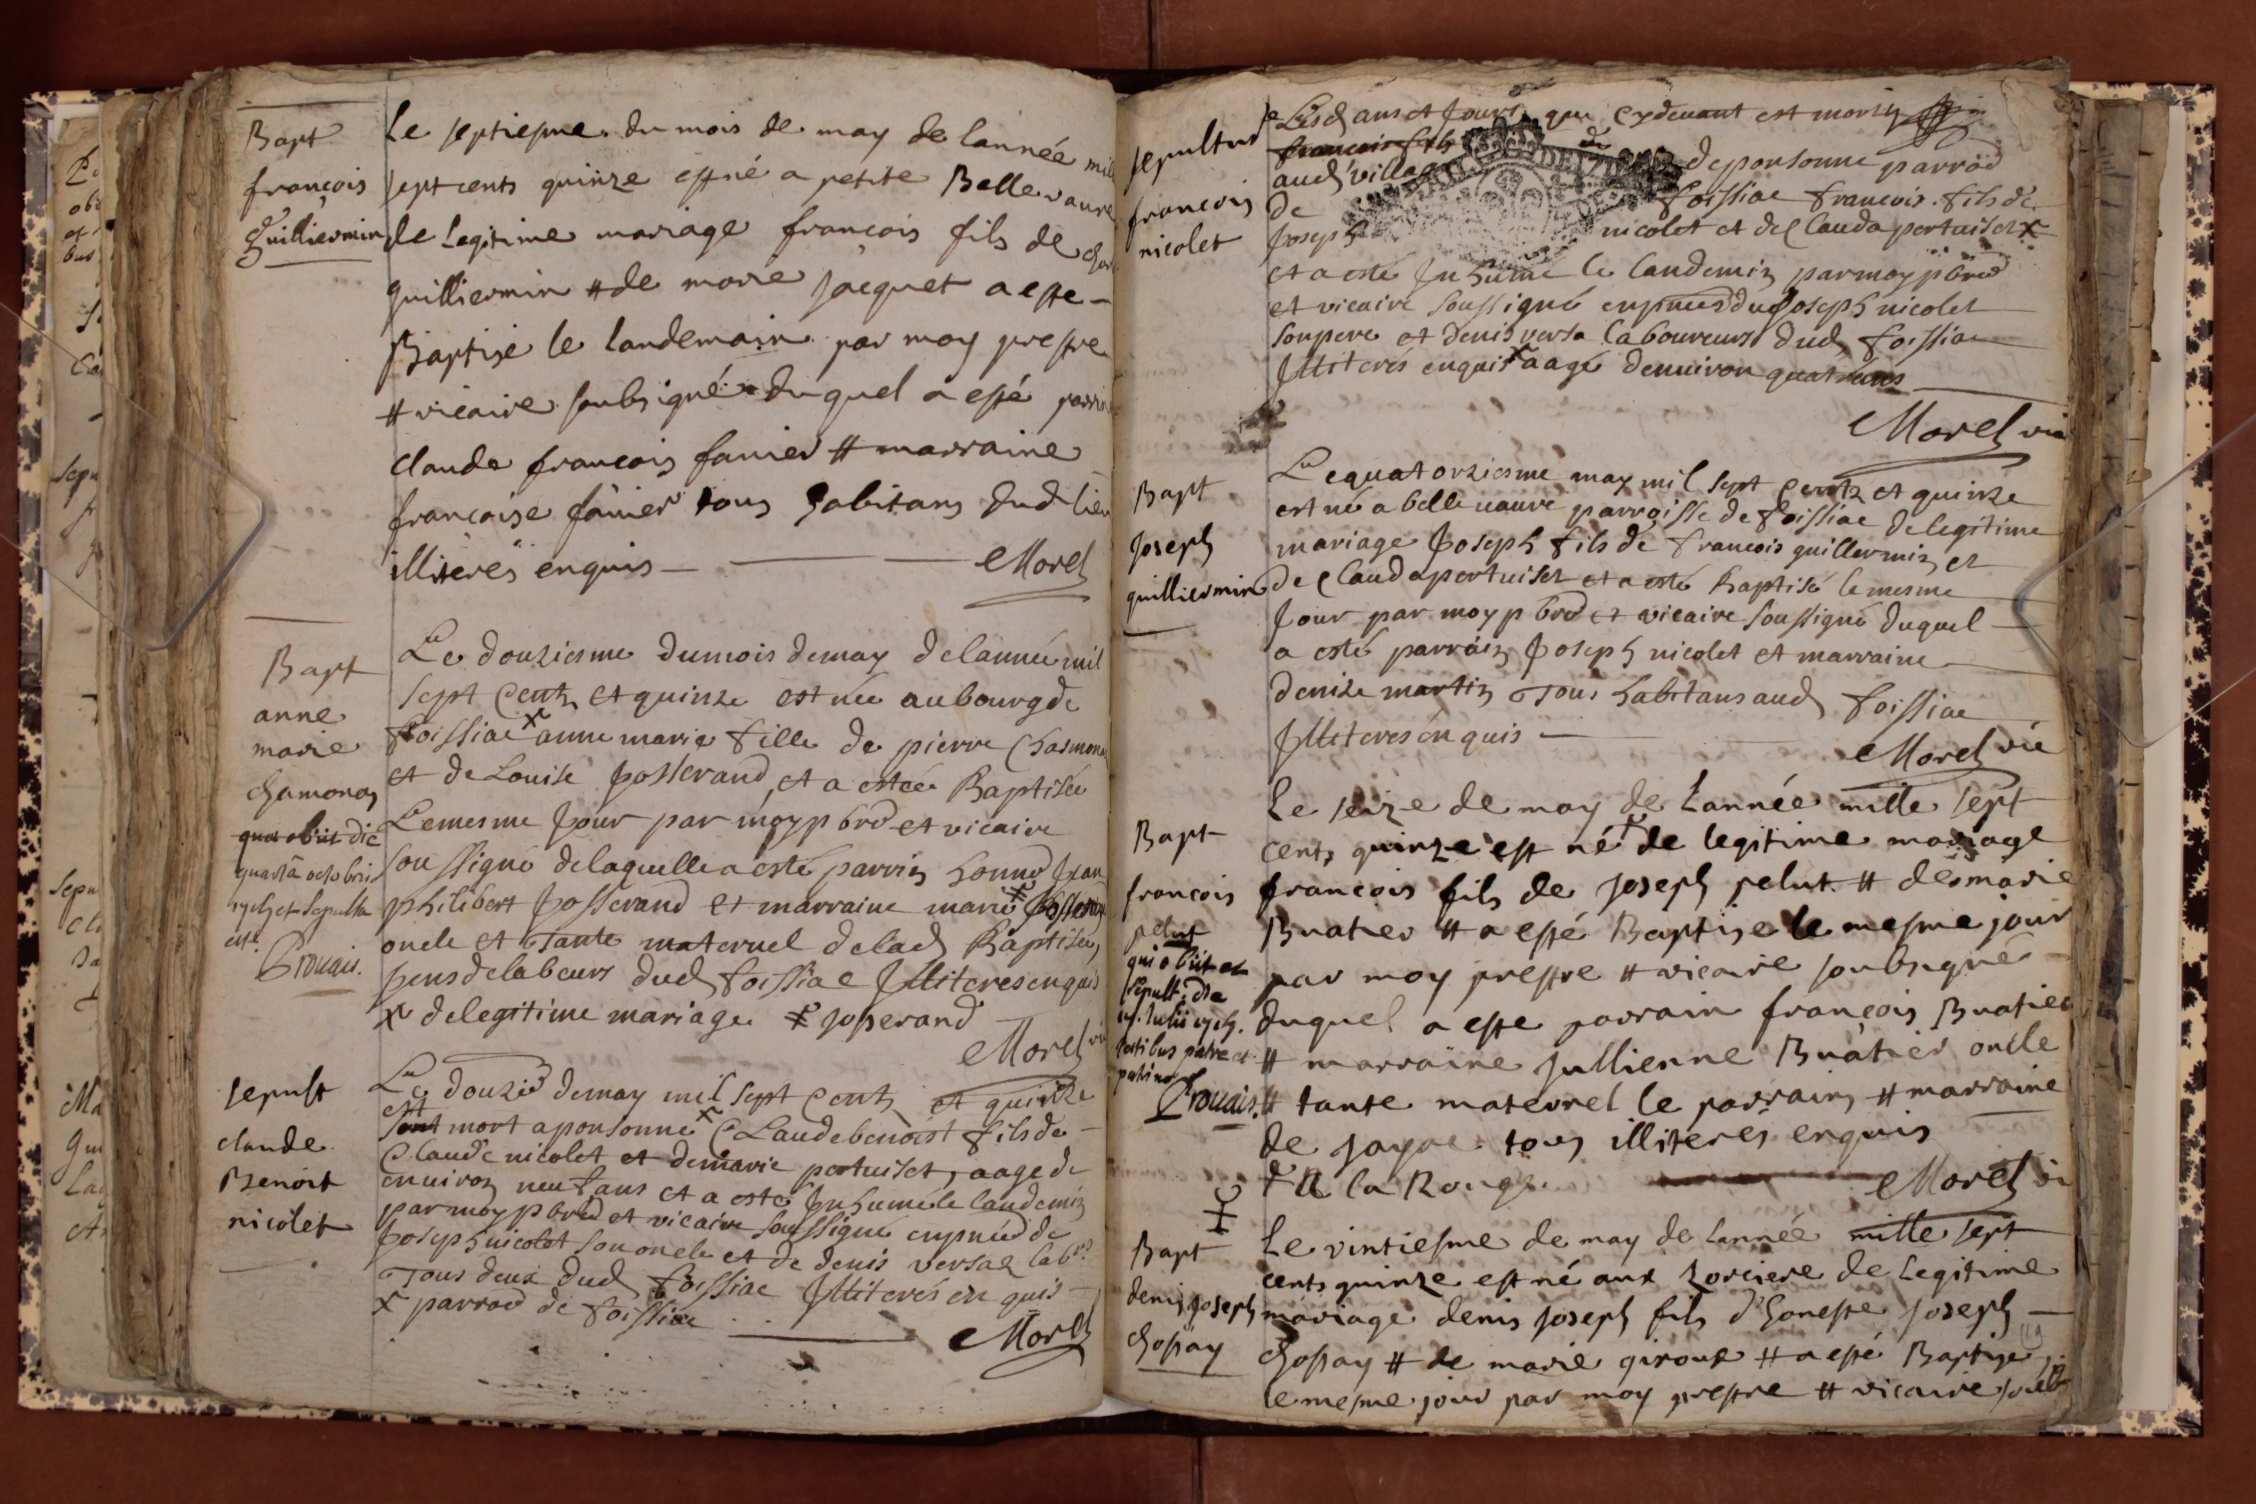 Bapt
françois
Guilliermin
Le septiesme du mois de may de lannée mil
sept cents quinze est né a petite Bellevavre
de Legitime mariage françois fils de
guilliermin # de marie jacquet a este
Baptisé le landemain par moy prestre
# vicaire soubsigné duquel a esté parrin
claude françois fanier # marraine
françoise fanier tous habitans dud lieu
illiterés enquis
Morel
Bapt
anne
marie
chamonay
quae obiit die
quarta octobris
et sepulta
est
Prouais.
Le douziesme dumois demay delannée mil
sept Centz et quinze est née aubourg de
foissiac x anne marie fille de pierre
et de Louise Josserand et a estée Baptisée
Lemesme Jour par moy pbre et vicaire
soussigné delaquelle a esté parrin
philibert Josserand et marraine marie
oncle et Tante maternel delad Baptisée
gens delabeurs dud foissiac Illiteres enquis
x delegitime mariage ≠ josserand
Morel vi
sepult
claude
Benoit
nicolet
Le douzie demay mil sept Centz et quinze
est mort aponsonne x Claudebenoist fils de
Claude nicolet et demarie pertuiset, aagede
enuiron neuf ans et a esté Inhumé le landemin
par moy pbre et vicaire soussigné enpnce de
Joseph nicolet son oncle et de denis
Tous deux dud foissiac Illiterés en quis
x parroe de foissiac
Morel
sepulture
francois
nicolet
Lesd ans et Jours que cydeuant est mort
aud village deponsonne parroe
de foissiac francois fils de
Joseph nicolet et de Clauda pertuiset x
et a esté Inhumé le landemin par moy pbre
et vicaire soussigné enpnces du Joseph nicolet
sonpere et denis versa laboureurs dud foissiac
Illiterés enquis x aagé denuiron quatre ans
Morel vic
Bapt
Joseph
guilliermin
Lequatorziesme may mil sept Centz et quinze
est né a belleuaure parroisse de foissiac delegitime
mariage Joseph fils de francois guillermin et
de Clauda pertuiset et a esté Baptisé le mesme
Jour par moy pbre et vicaire soussigné duquel
a esté parrain Joseph nicolet et marraine
denise martin Tous habitans aud foissiac
Illiterés en quis
Morel vic
Bapt
françois
pelut
qui obiit et
sepult. die
Julii
testibus patre et
patrino
Prouais.
Le seize de may de Lannée mille sept
cents quinze est né de legitime mariage
francois fils de joseph pelut # de marie
Buatier # a esté Baptisé le mesme jour
par moy prestre # vicaire soubsigné
duquel a esté parrain françois Buatier
# marraine jullienne Buatier oncle
# tante maternel le parrain # marraine
de jayac tous illiterés enquis
a la Rouge
Morel vi
Bapt
denis joseph
chossay
Le vintiesme de may de Lannée mille sept
cents quinze est né aux sorciere de Legitime
mariage denis joseph fils d'honeste joseph
chossay # de marie giroux # a esté Baptisé
le mesme jour par moy prestre # vicaire soub